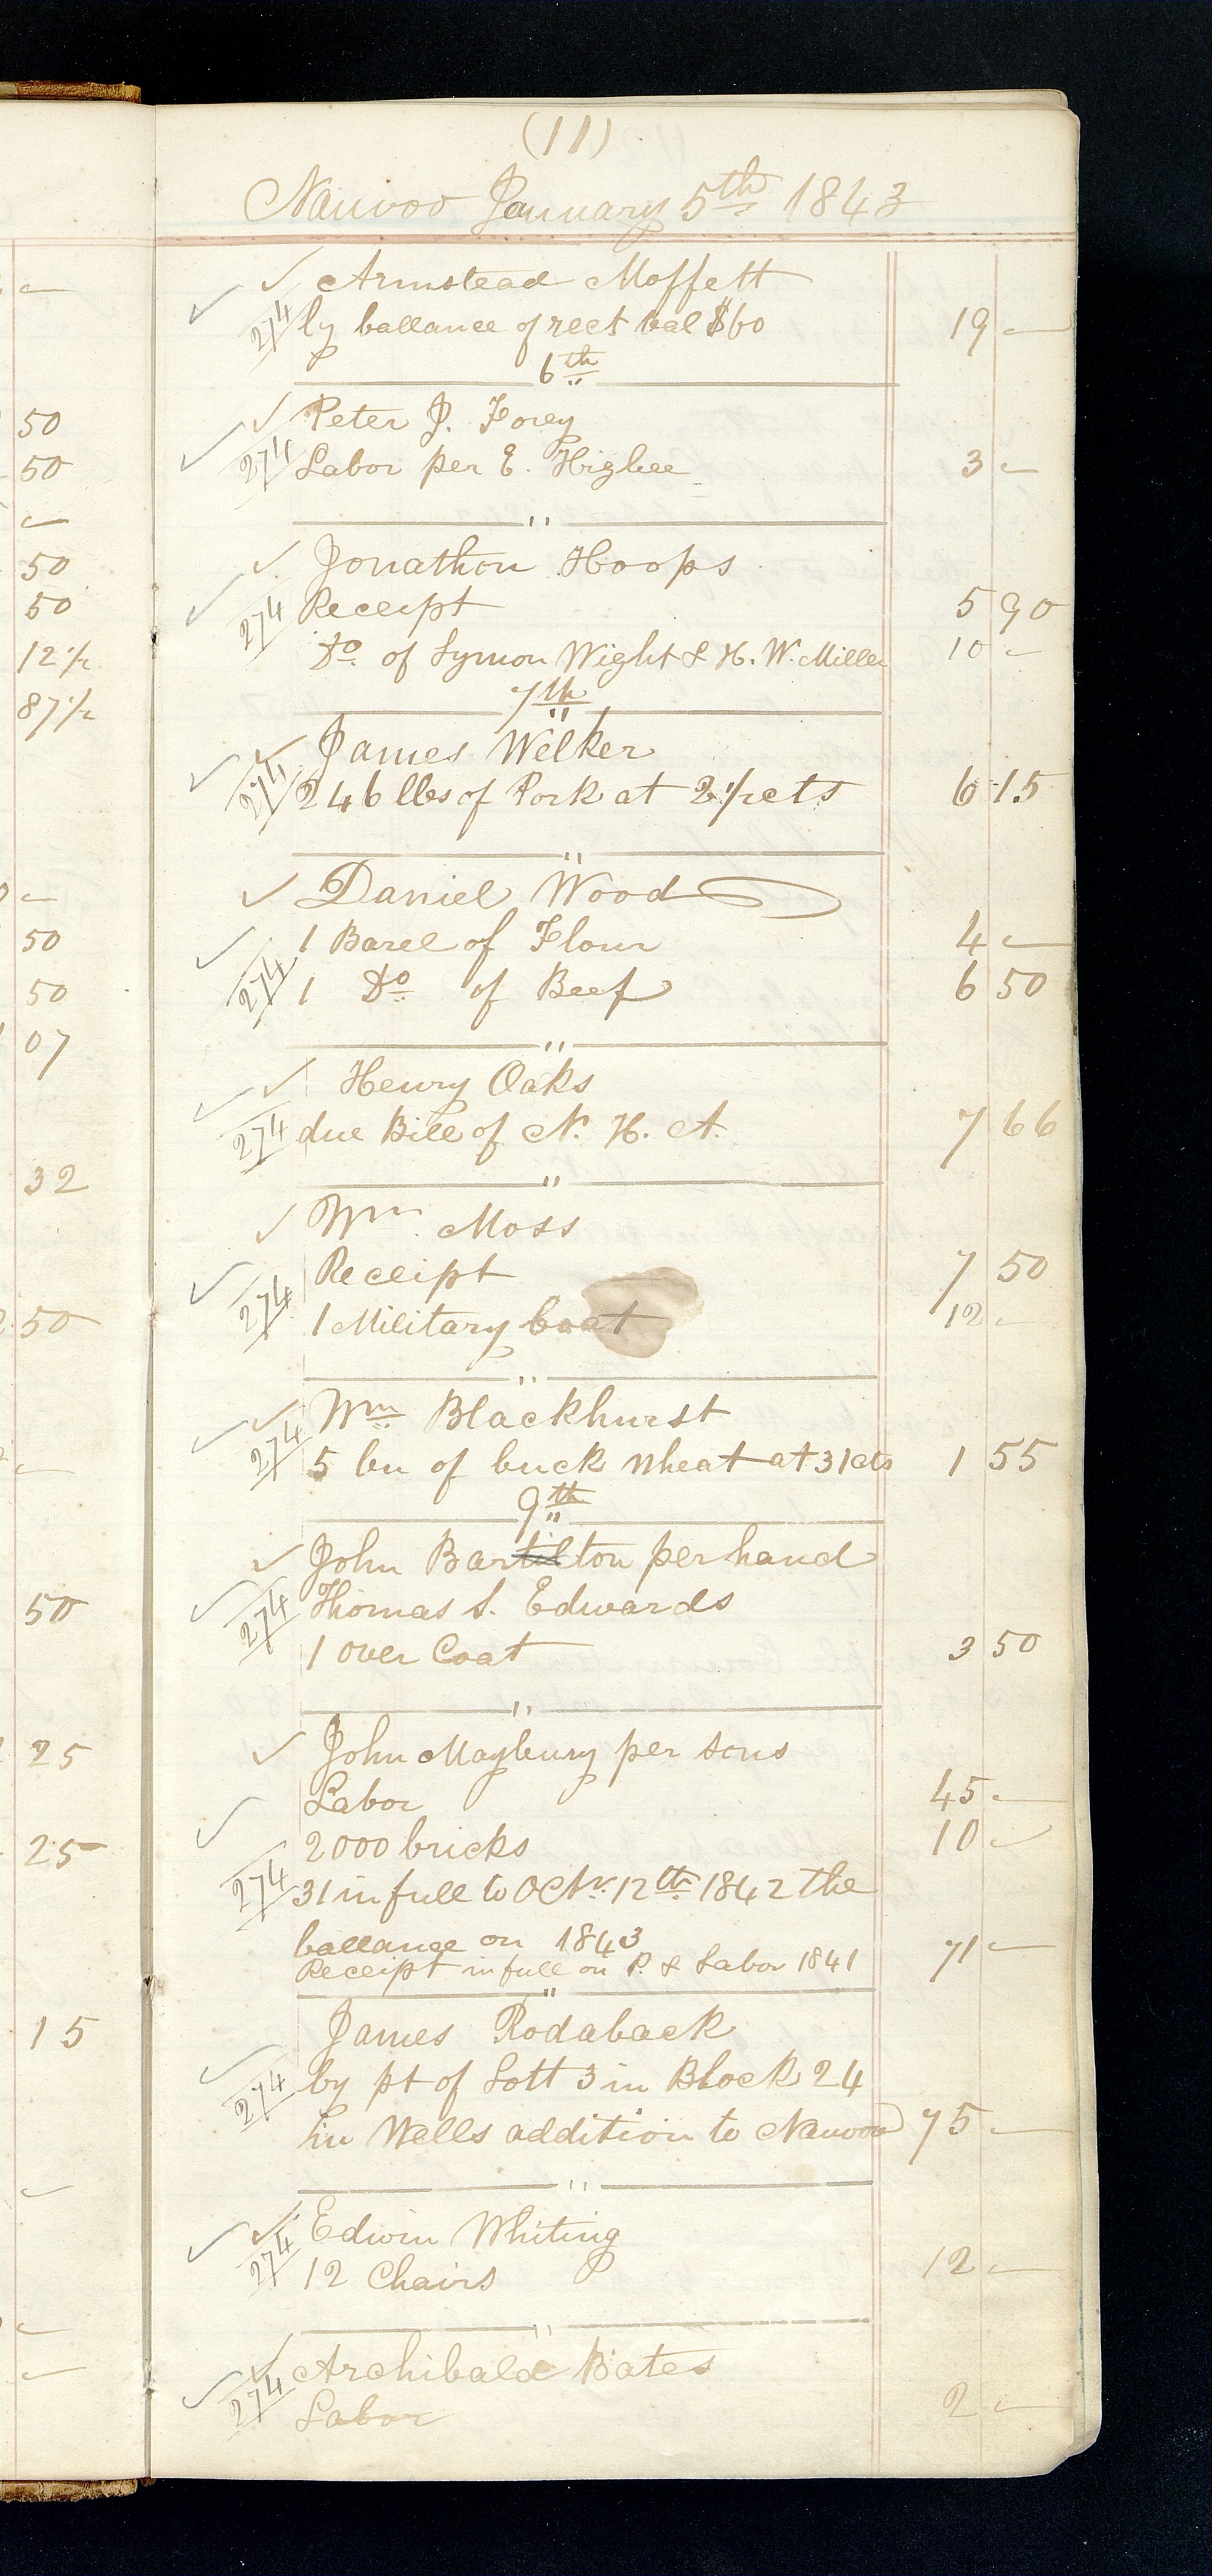 (11)
Nauvoo January 5th 1843
Armstead Moffett
274 by ballance of rect bal $60 19 —
6th
Peter J. Forey
274 Labor per E. Higbee 3 —
"
Jonathon Hoops
274 Receipt 5 90
Do of Lymon Wight & H. W. Miller 10 —
7th
"
James Welker
274 246 lbs of Pork at 2 1/2 cts 6 15
"
Daniel Wood
1 Barel of Flour 4 —
274 1 Do of Beef 6 50
"
Henry Oaks
274 due Bill of N. H. A. 7 66
"
Wm. Moss
Receipt 7 50
274 1 Military Coat 12 —
"
Wm Blackhurst
274 5 bu of buck wheat at 31 cts 1 55
9th
"
John Bartilton per hand
274 Thomas S. Edwards
1 over Coat 3 50
"
John Maybury per sons
Labor 45 —
2000 bricks 10 —
274 31 in full to Octr. 12th 1842 the
ballance on 1843
Receipt in full on P. & Labor 1841 71 —
"
James Rodaback
274 by pt of Lott 3 in Block 24
in Wells addition to Nauvoo 75 —
"
Edwin Whiting
274 12 Chairs 12 —
"
Archibald Bates
274 Labor 2 —
—
50
50
—
50
50
12 1/2
87 1/2
—
50
50
07
32
50
—
50
25
25
15
—
—
—